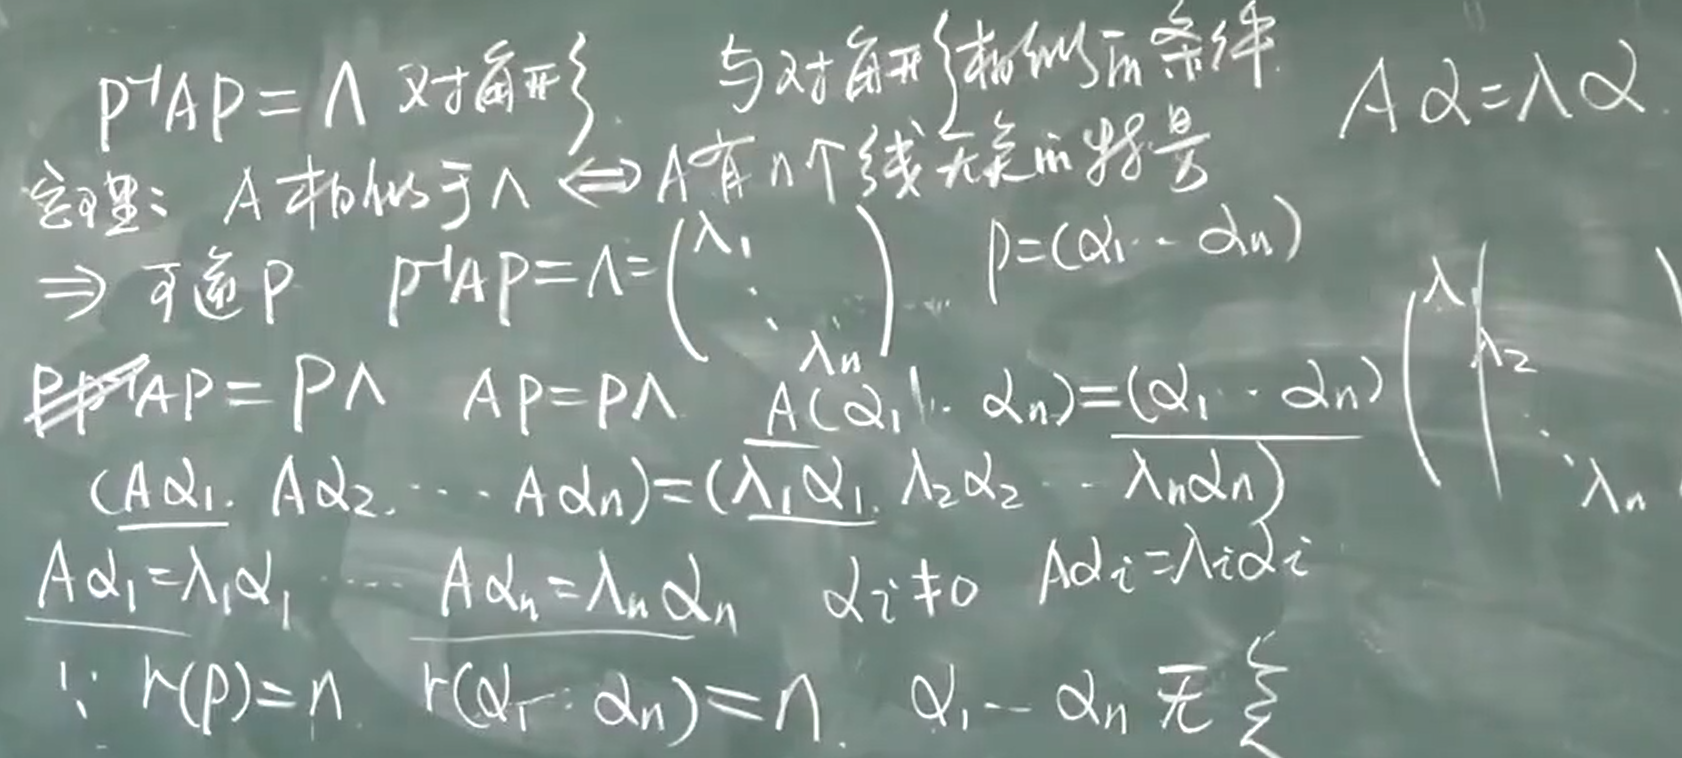 P⁻¹AP=Λ 对角形. 与对角形相似的条件. Aα=λα.
定理: A相似于Λ ⇔ A有n个线无关的特
⇒ 可逆P P⁻¹AP=Λ=(λ₁ ⋱ λₙ) P=(α₁ ⋯ αₙ)
PP⁻¹AP=PΛ AP=PΛ A(α₁ ⋯ αₙ)=(α₁ ⋯ αₙ)(λ₁ λ₂ ⋱ λₙ)
(Aα₁. Aα₂. ⋯ Aαₙ)=(λ₁α₁. λ₂α₂ ⋯ λₙαₙ)
Aα₁=λ₁α₁ ⋯ Aαₙ=λₙαₙ αᵢ≠0 Aαᵢ=λᵢαᵢ
∵ r(P)=n. r(α₁ ⋯ αₙ)=n. α₁ ⋯ αₙ 无